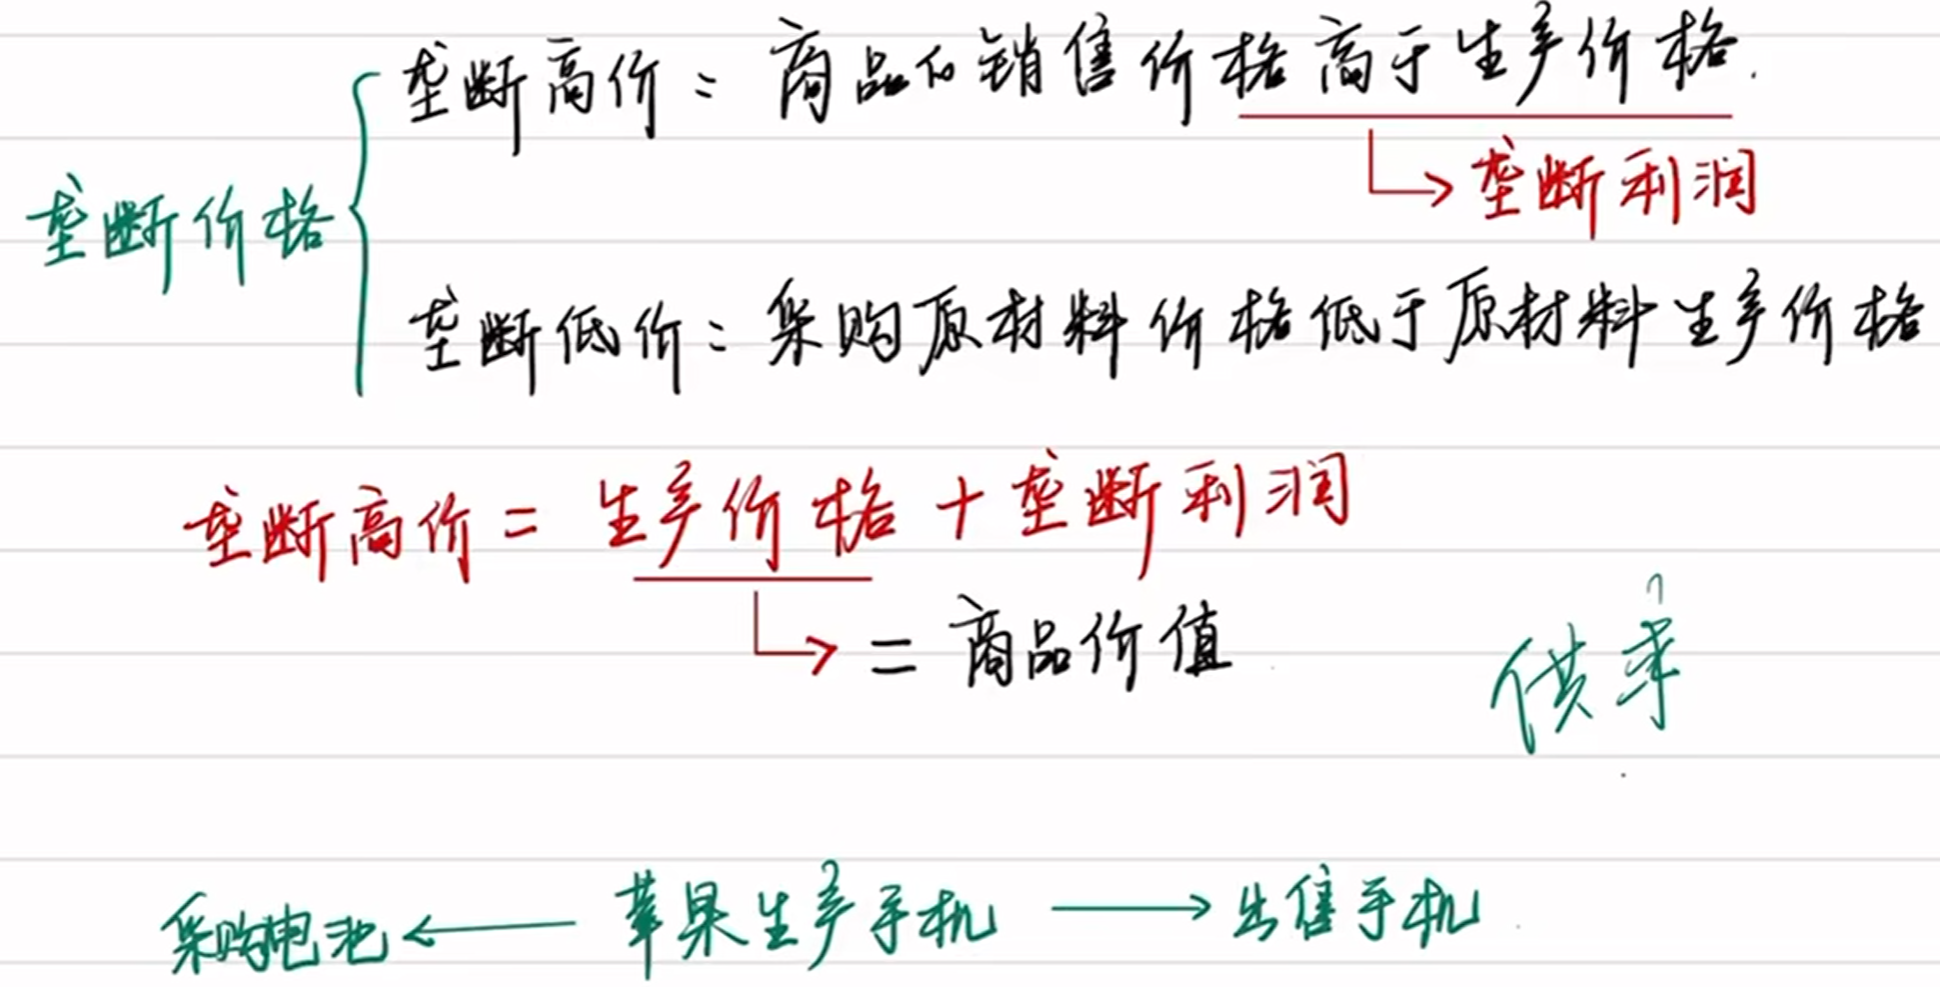 垄断高价：商品的销售价格高于生产价格.
垄断利润
垄断价格
垄断低价：采购原材料价格低于原材料生产价格
垄断高价 = 生产价格 + 垄断利润
= 商品价值
供求
采购电池 ← 苹果生产手机 → 出售手机